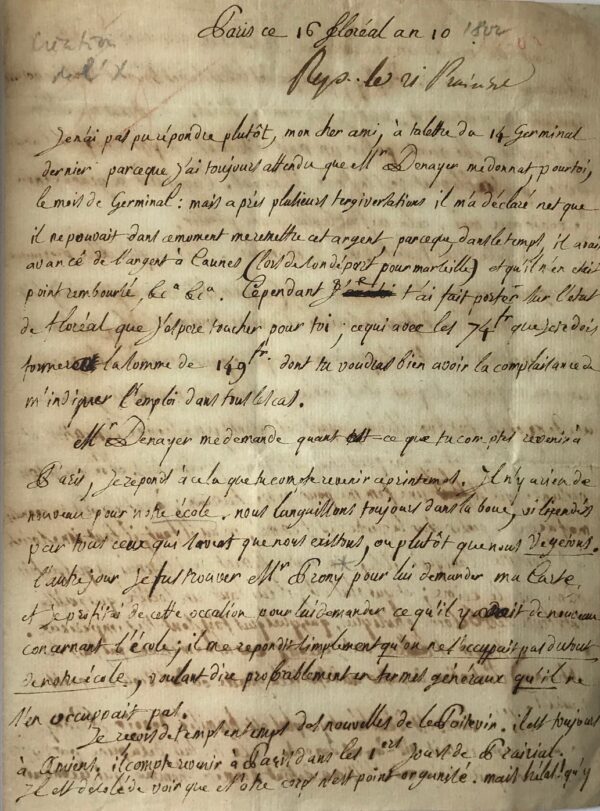 Création
de l'X
Paris ce 16 floréal an 10 1802
Rep. le 21 Prairial
Je n'ai pas pu répondre plutôt, mon cher ami, à ta lettre du 14 Germinal
dernier parceque j'ai toujours attendu que Mr Denayer me donnat, pour toi,
le mois de Germinal : mais après plusieurs tergiversations il m'a déclaré net que
il ne pouvait dans ce moment me remettre cet argent, parceque, dans le temps, il avait
avancé de l'argent à Caunes (lors de son départ pour marseille) et qu'il n'en était
point remboursé, &ca &ca. Cependant je t'ai fait porter sur l'état
de floréal que j'espère toucher pour toi ; ce qui avec les 74fr que je te dois
formera la somme de 149fr. dont tu voudras bien avoir la complaisance de
m'indiquer l'emploi dans tous les cas.
Mr Denayer me demande quant est-ce que tu comptes revenir à
Paris, je répond à cela que tu compte revenir ce printems. Il n'y a rien de
nouveau pour notre école. nous languissons toujours dans la boue, vilipendés
par tous ceux qui savent que nous existons, ou plutôt que nous végétons.
l'autre jour je fus trouver Mr Prony pour lui demander ma Carte,
et je profitai de cette occasion pour lui demander ce qu'il y avait de nouveau
concernant l'école ; il me repondit simplement qu'on ne s'occuppait pas du tout
de notre école, voulant dire probablement en termes généraux qu'il ne
s'en occuppait pas.
Je reçois de temps en temps des nouvelles de le Poitevin. il est toujours
à Amiens. il compte revenir à Paris dans les 1ers Jours de Prairial.
Il est désolé de voir que notre corps n'est point organisé. mais hélas ! qu'y